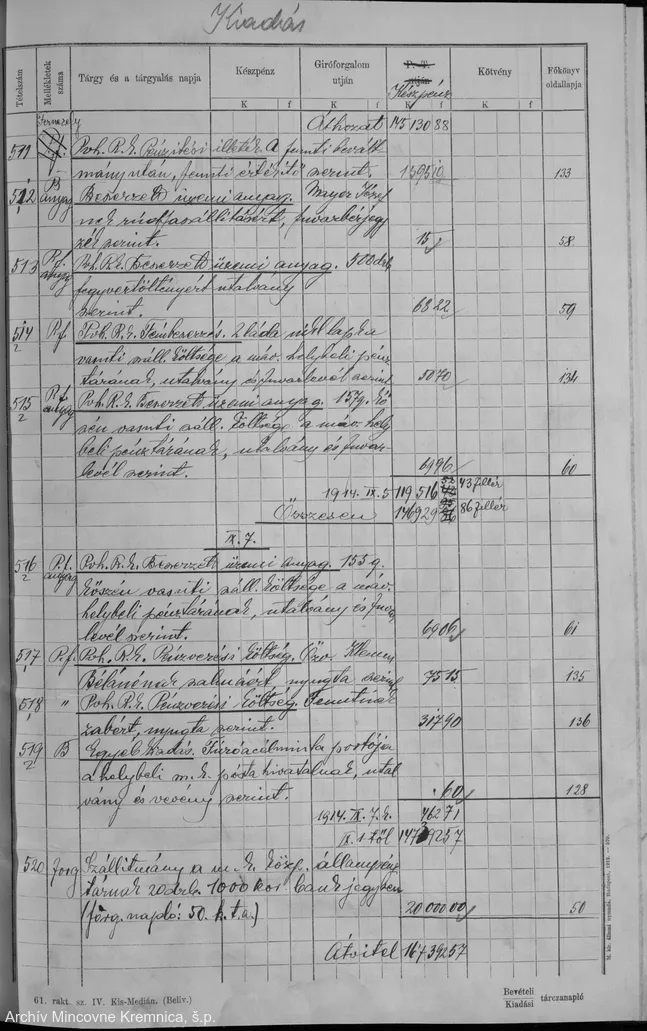 Kiadás
Tételszám
Mellékletek száma
Tárgy és a tárgyalás napja
Készpénz
Giróforgalom útján
P. T. útján
Készpénz
Kötvény
Főkönyv oldallapja
K f K f K f K f
Áthozat 145130 88
511 Poh. R. E. Pénzítési illeték. A fémti bevált-
mány után, fémti értesítő szerint. 1595 10 133
512 B anyag Beszerzett üzemi anyag. Mayer József
nek rúdfaszállításért, fuvarbérjegy
zék szerint. 15 58
513 R.f. anyag Poh. R. E. Beszerzett üzemi anyag. 500 drb
fegyvertöltényért utalvány
szerint. 68 22 59
514 2 R.f. Poh. R. E. Fémbeszerzés. 2 láda nikl lapka
vasuti száll. költsége a máv. helybeli pénz
tárának, utalvány és fuvarlevél szerint 50 70 134
515 2 R.f. anyag Poh. R. E. Beszerzett üzemi anyag. 157 q. kő
szén vasuti száll. költsége a máv. hely
beli pénztárának, utalvány és fuvar
levél szerint. 69 96 60
1914. IX. 5 119516 43 fillér
Összesen 146929 86 fillér
IX. 7.
516 2 R.f. anyag Poh. R. E. Beszerzett üzemi anyag. 155 q.
kőszén vasuti száll. költsége a máv.
helybeli pénztárának, utalvány és fuva
levél szerint. 69 06 61
517 1 R.f. Poh. R. E. Pénzverési költség. Özv. Klemen
Bélánénak szalmáért nyugta szerint 75 15 135
518 1 " Poh. R. E. Pénzverési költség.
zabért, nyugta szerint. 317 90 136
519 2 B Egyéb kiadás. Fúróacélminta portója
a helybeli m. k. posta hivatalnak, utal
vány és vevény szerint. . 60 128
1914. IX. 7. k. 462 71
IX. 1 től 147392 57
520 forg Szállitmány a m. k. közp. állampénz
tárnak 20 drb. 1000 kor bankjegyben
(forg. napló: 50. k. t. a.) 20000 00 50
Átvitel 167392 57
61. rakt. sz. IV. Kis-Medián. (Beliv.)
Bevételi
Kiadási tárcanapló
M. kir. állami nyomda. Budapest, 1912.
Archív Mincovne Kremnica, š.p.